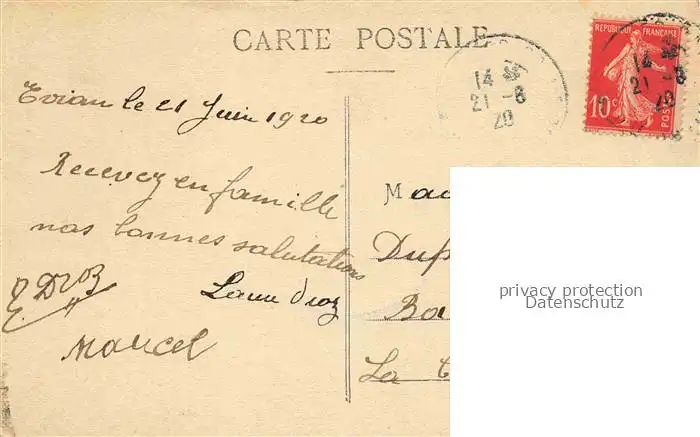 CARTE POSTALE
REPUBLIQUE FRANÇAISE
10c POSTES
14
21-6
20
14
21-6
20
Evian le 21 Juin 1920
Recevez en famille
nos bonnes salutations
Droz
Laure Droz
Marcel
Mad
Dup
Ba
La
privacy protection
Datenschutz